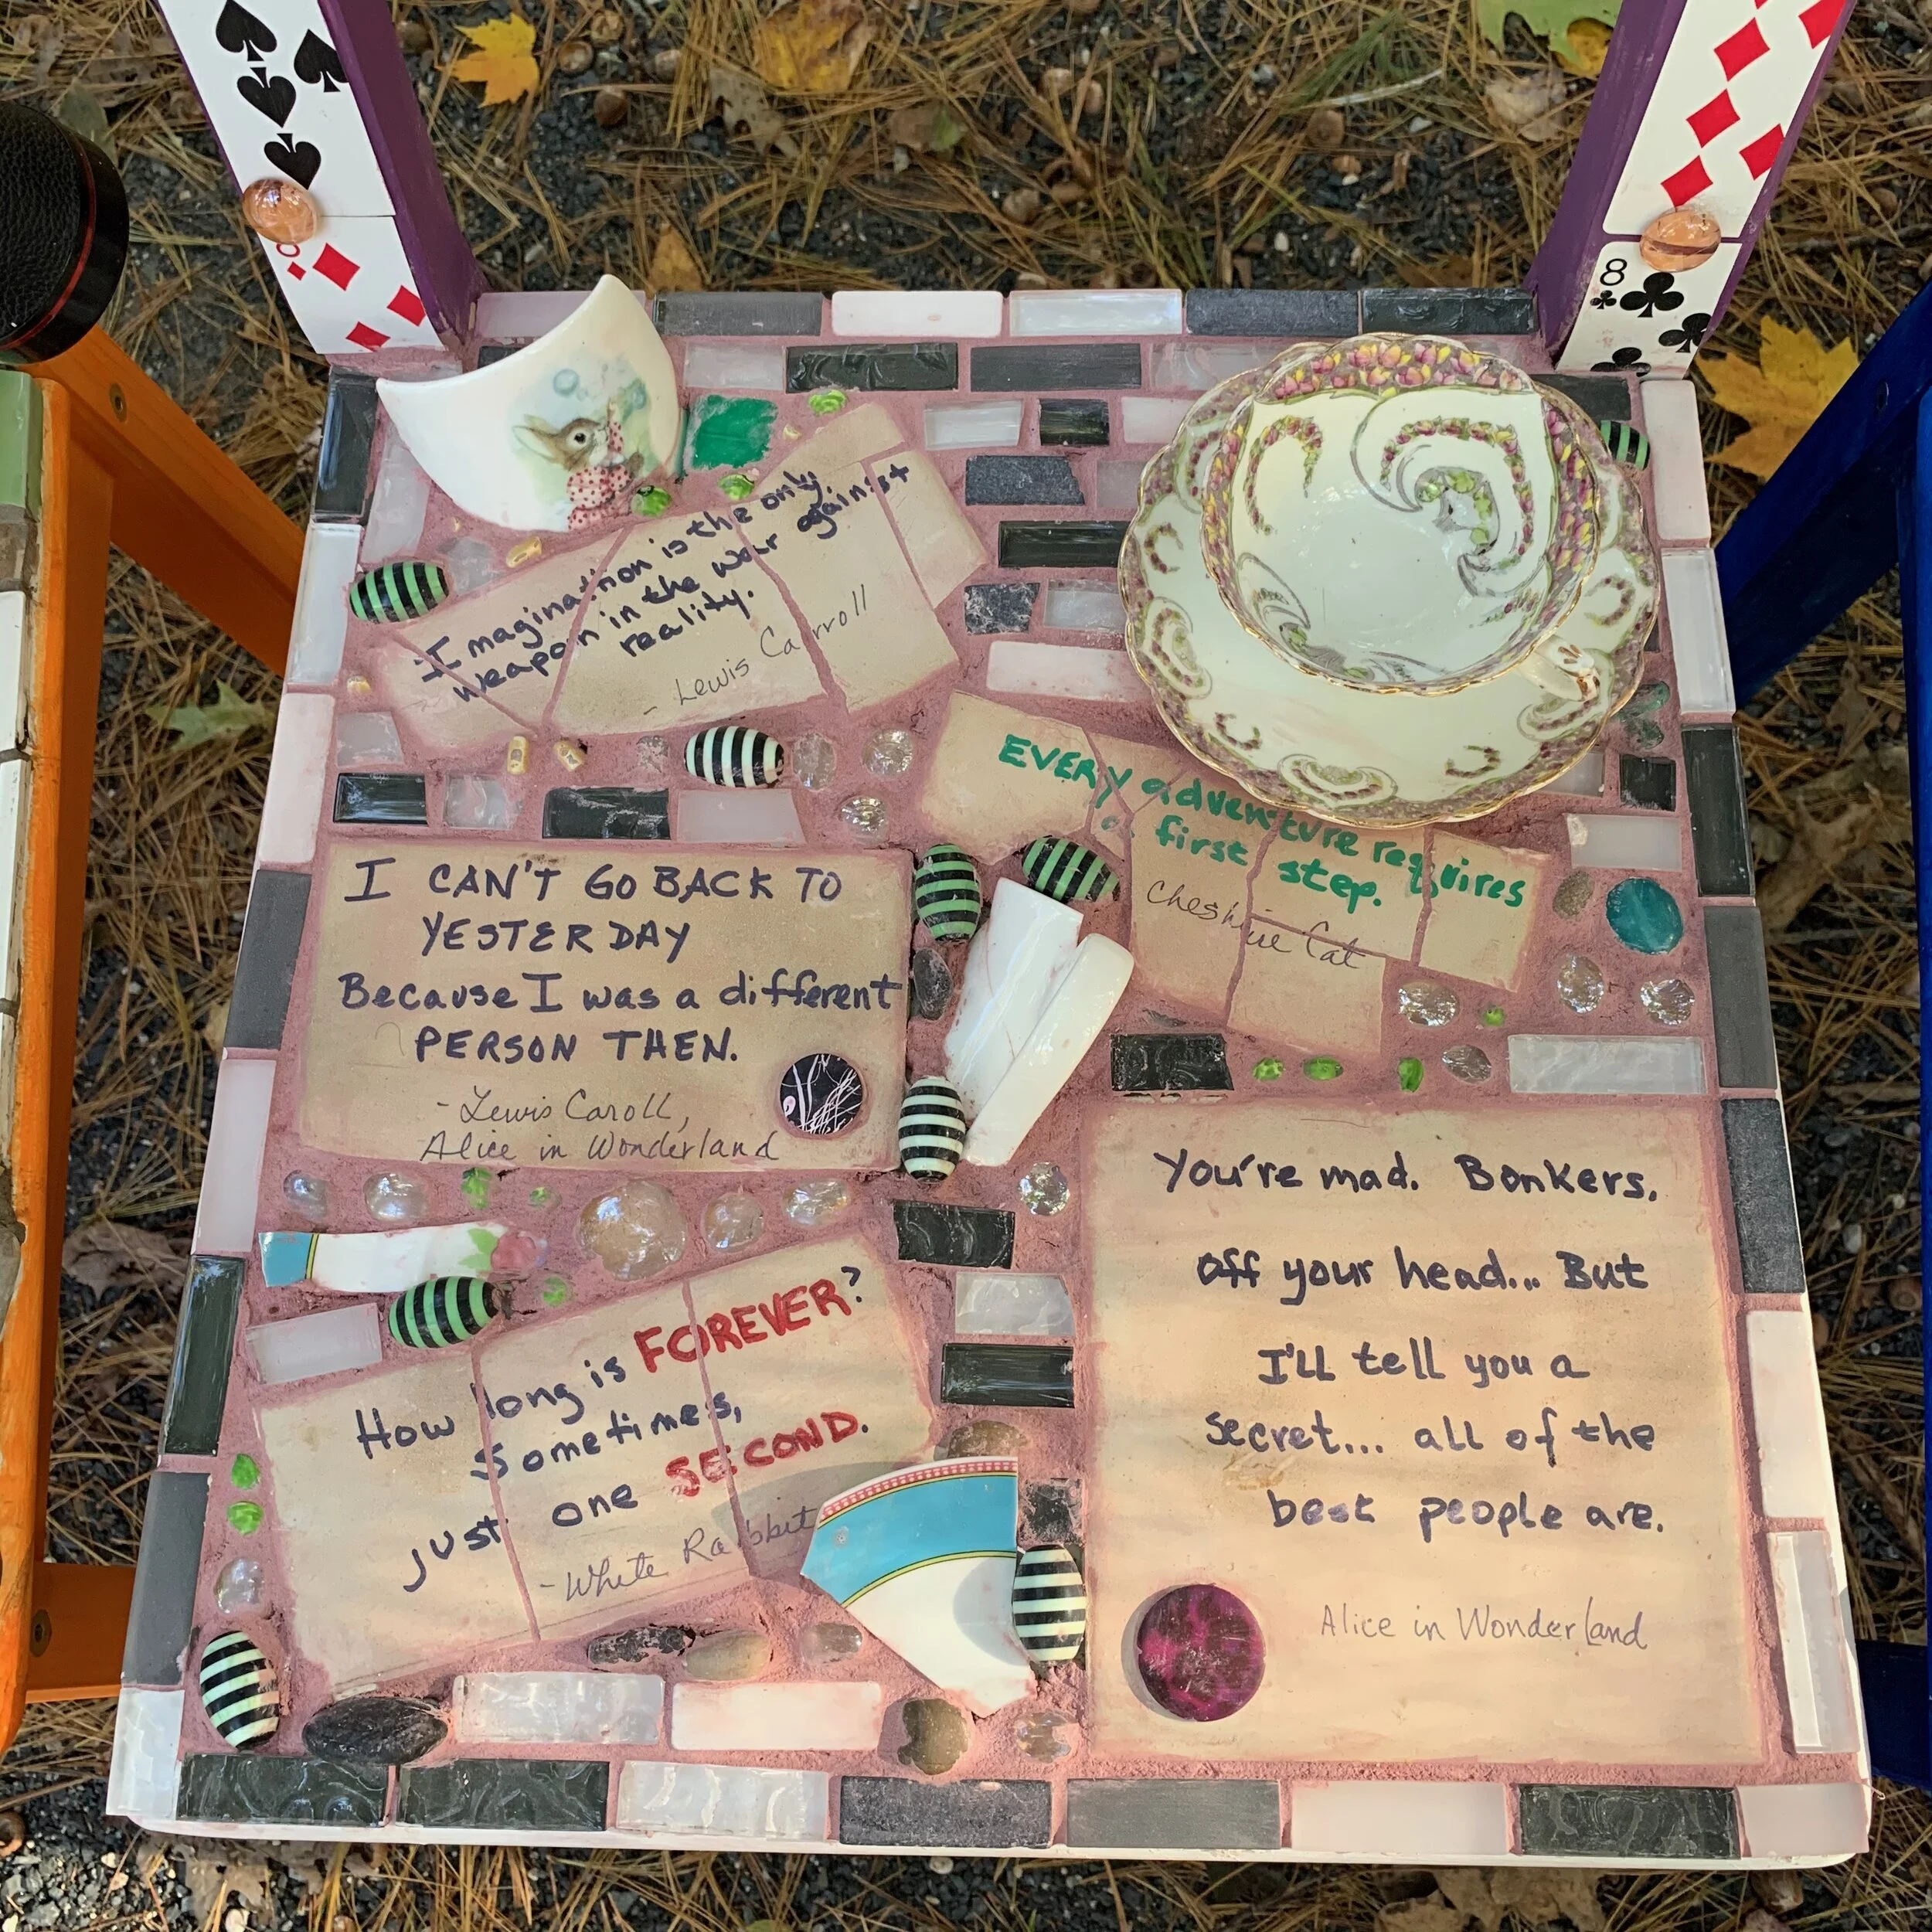 8
Imagination is the only
weapon in the war against
reality.
- Lewis Carroll
EVERY adventure requires
first step.
Cheshire Cat
I CAN'T GO BACK TO
YESTERDAY
Because I was a different
PERSON THEN.
- Lewis Caroll,
Alice in Wonderland
How long is FOREVER?
Sometimes,
just one SECOND.
- White Rabbit
You're mad. Bonkers.
Off your head... But
I'll tell you a
secret... all of the
best people are.
Alice in Wonderland